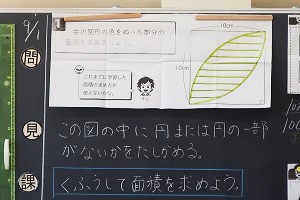 9/1
問
右の図形の色をぬった部分の
面積を求めましょう。
これまでに学習した
面積の求め方が
使えないかな。
10cm
10cm
見
この図の中に円または円の一部
がないかをたしかめる。
課
くふうして面積を求めよう。